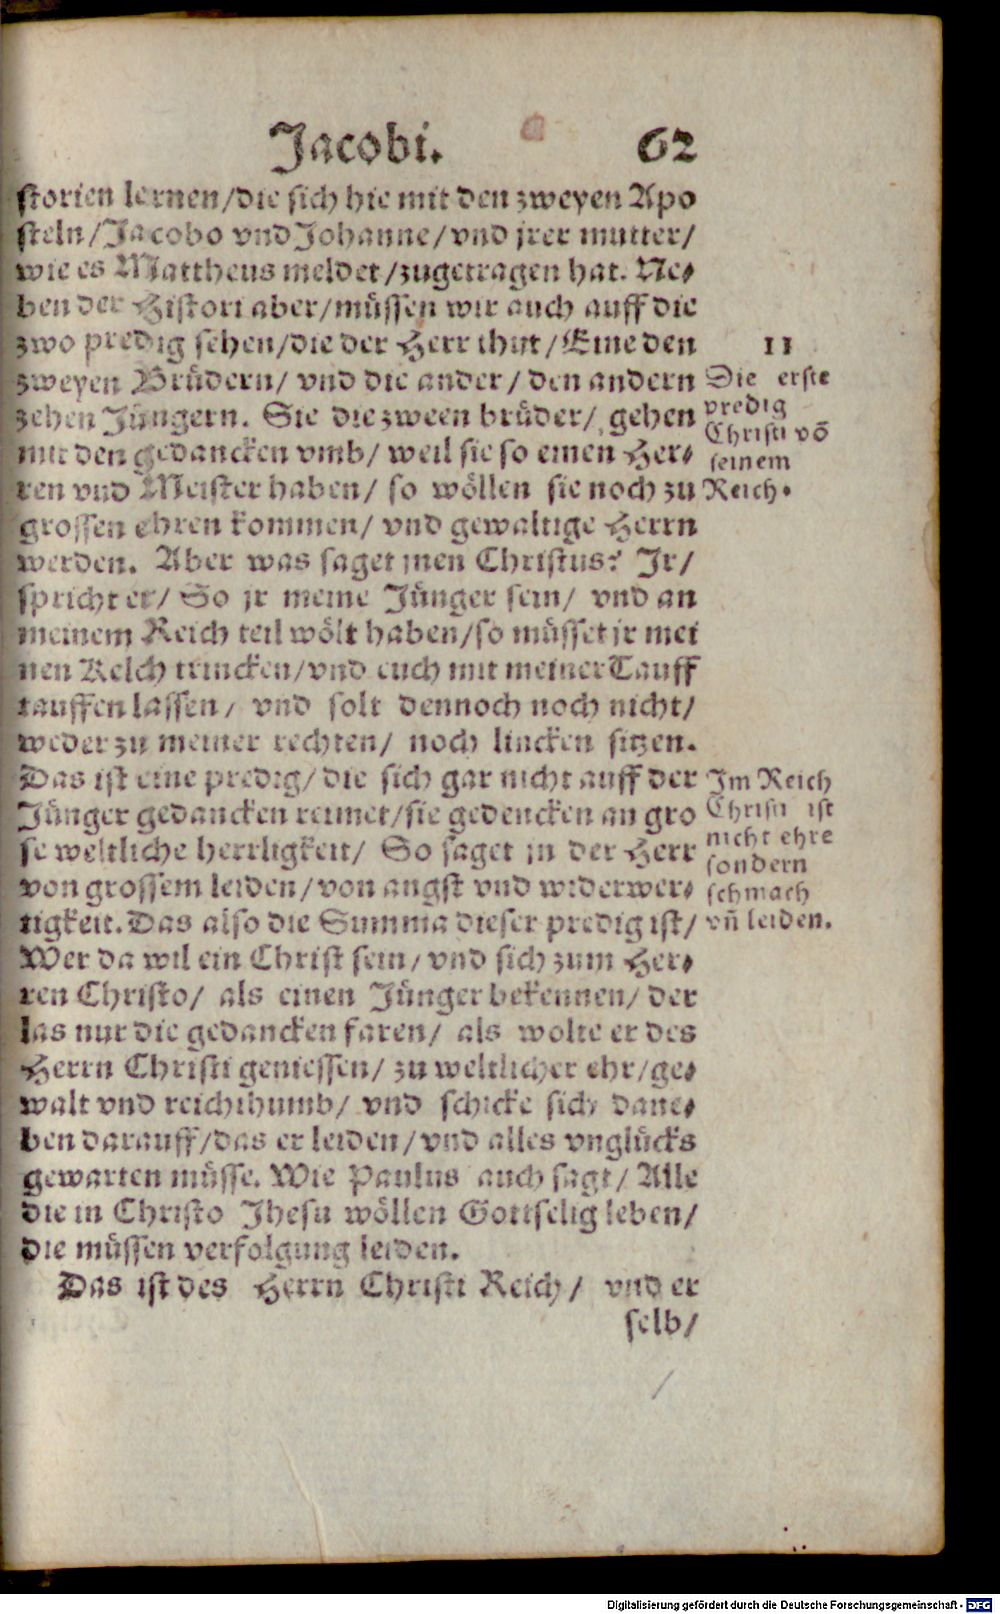 Jacobi. 62
storien lernen/die sich hie mit den zweyen Apo
steln/Jacobo vnd Johanne/vnd jrer mutter/
wie es Mattheus meldet/zugetragen hat. Ne⸗
ben der Histori aber/müssen wir auch auff die
zwo predig sehen/die der Herr thut/Eine den
zweyen Brüdern/ vnd die ander/ den andern
zehen Jüngern. Sie die zween brüder/ gehen
mit den gedancken vmb/ weil sie so einen Her⸗
ren vnd Meister haben/ so wöllen sie noch zu
grossen ehren kommen/ vnd gewaltige Herrn
werden. Aber was saget jnen Christus? Jr/
spricht er/ So jr meine Jünger sein/ vnd an
meinem Reich teil wölt haben/so müsset jr mei
nen Kelch trincken/vnd euch mit meiner Tauff
tauffen lassen/ vnd solt dennoch noch nicht/
weder zu meiner rechten/ noch lincken sitzen.
Das ist eine predig/ die sich gar nicht auff der
Jünger gedancken reimet/sie gedencken an gro
se weltliche herrligkeit/ So saget jn der Herr
von grossem leiden/von angst vnd widerwer⸗
tigkeit. Das also die Summa dieser predig ist/
Wer da wil ein Christ sein/ vnd sich zum Her⸗
ren Christo/ als einen Jünger bekennen/ der
las nur die gedancken faren/ als wolte er des
Herrn Christi geniessen/ zu weltlicher ehr/ge⸗
walt vnd reichthumb/ vnd schicke sich dane⸗
ben darauff/das er leiden/vnd alles vnglücks
gewarten müsse. Wie Paulus auch sagt/ Alle
die in Christo Jhesu wöllen Gottselig leben/
die müssen verfolgung leiden.
Das ist des Herrn Christi Reich/ vnd er
selb/
11
Die erste
predig
Christi võ
seinem
Reich.
Im Reich
Christi ist
nicht ehre
sondern
schmach
vñ leiden.
Digitalisierung gefördert durch die Deutsche Forschungsgemeinschaft - DFG